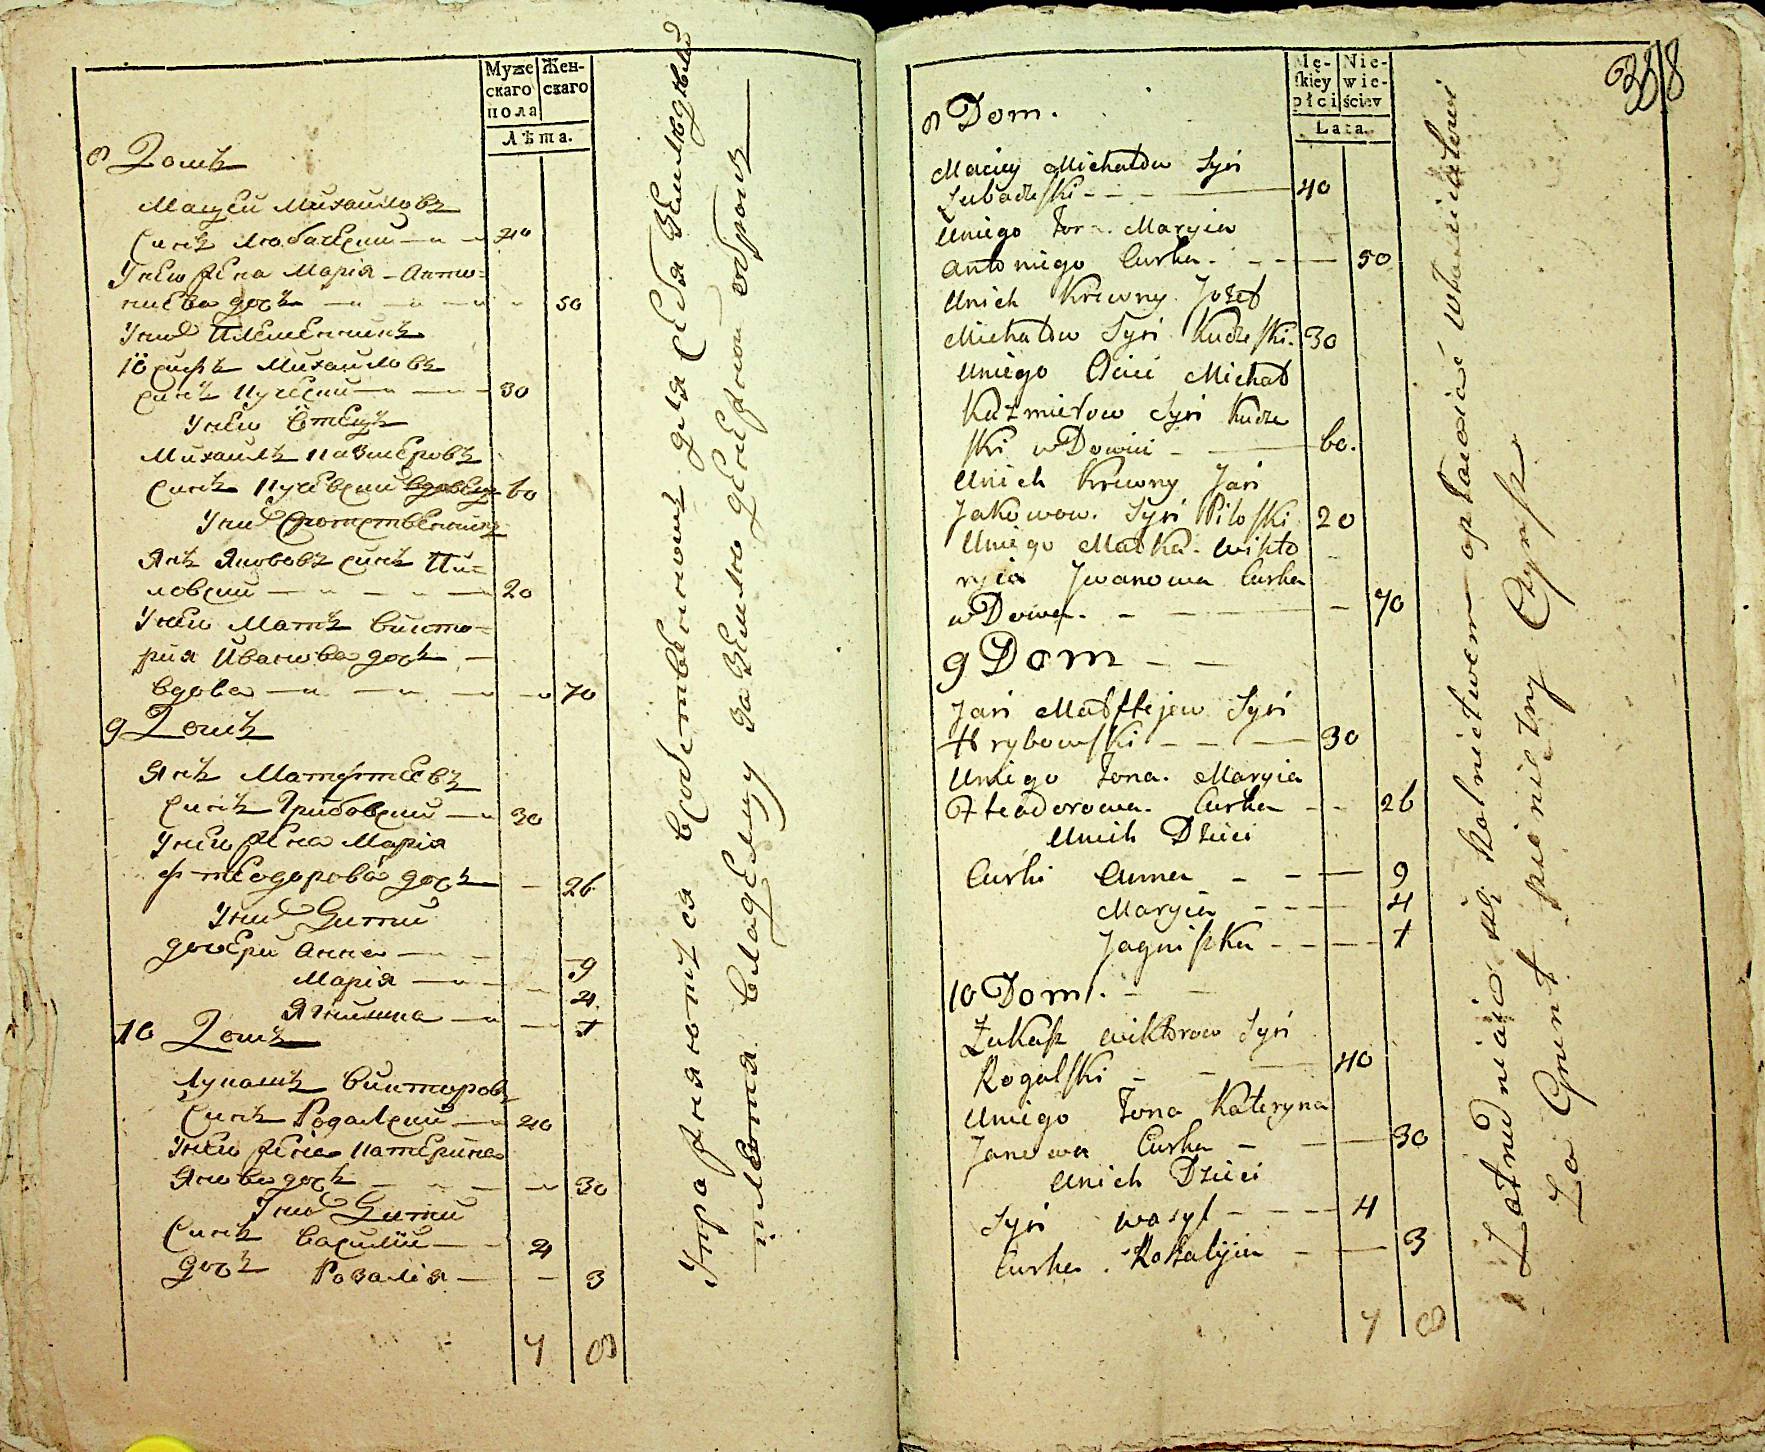 Муже
скаго
пола
Жен-
скаго
Лѣта.
8 Домъ
Мацѣй Михайловъ
сынъ Любачский 40
Унего жена Марія Анто-
ниева дочь 50
Унихъ Племенникъ
Іосифъ Михайловъ
сынъ Кучский 30
Унего Отецъ
Михаилъ Казмеровъ
сынъ 60
Унихъ Сродственникъ
Янъ Якововъ сынъ Пи-
ловский 20
Унего Мать Викто-
рия Иванова дочь
вдова 70
9 Домъ
Янъ Матфтеевъ
сынъ Грибовский 30
Унего жена Марія
Фтеодорова дочь 26
Унихъ Дети
дочери Анна 9
Марія 4
Ягнишка 1
10 Домъ
Лукашъ Викторовъ
сынъ Рогалский 40
Унего жена Катерина
Янова дочь 30
Унихъ Дети
Сынъ Василий 4
Дочь Розалія 3
7 8
Упражняются вхозяйственномъ для себя земледелии
платя владельцу за землю денежной оброкъ
Mę-
skiey
płci
Nie-
wie-
ściey
Lata.
358
8 Dom.
Maciey Michałow Syn
Lubaczski 40
Uniego Żona Maryia
Antoniego Curka 50
Unich Krewny Jozef
Michałow Syn Kudzski 30
Uniego Ociec Michał
Kazmierow Syn Kudz
ski wDowiec 60.
Unich Krewny Jan
Jakowow Syn Piloski 20
Uniego Matka Wikto
ryia Jwanowa Curka
wDowa 70
9 Dom
Jan Matftejew Syn
Hrybowski 30
Uniego Żona Maryia
Fteodorowa Curka 26
Unich Dzieci
Curki Anna 9
Maryia 4
Jagniszka 1
10 Dom.
Łukasz Wiktorow Syn
Rogalski 40
Uniego Żona Kateryna
Janowa Curka 30
Unich Dzieci
Syn Wasyl 4
Curka Rozalyia 3
7 8
Zatrudniaią się Rolnictwem opłacaiąc właścicielowi
Za Grunt pieniężny Czynsz